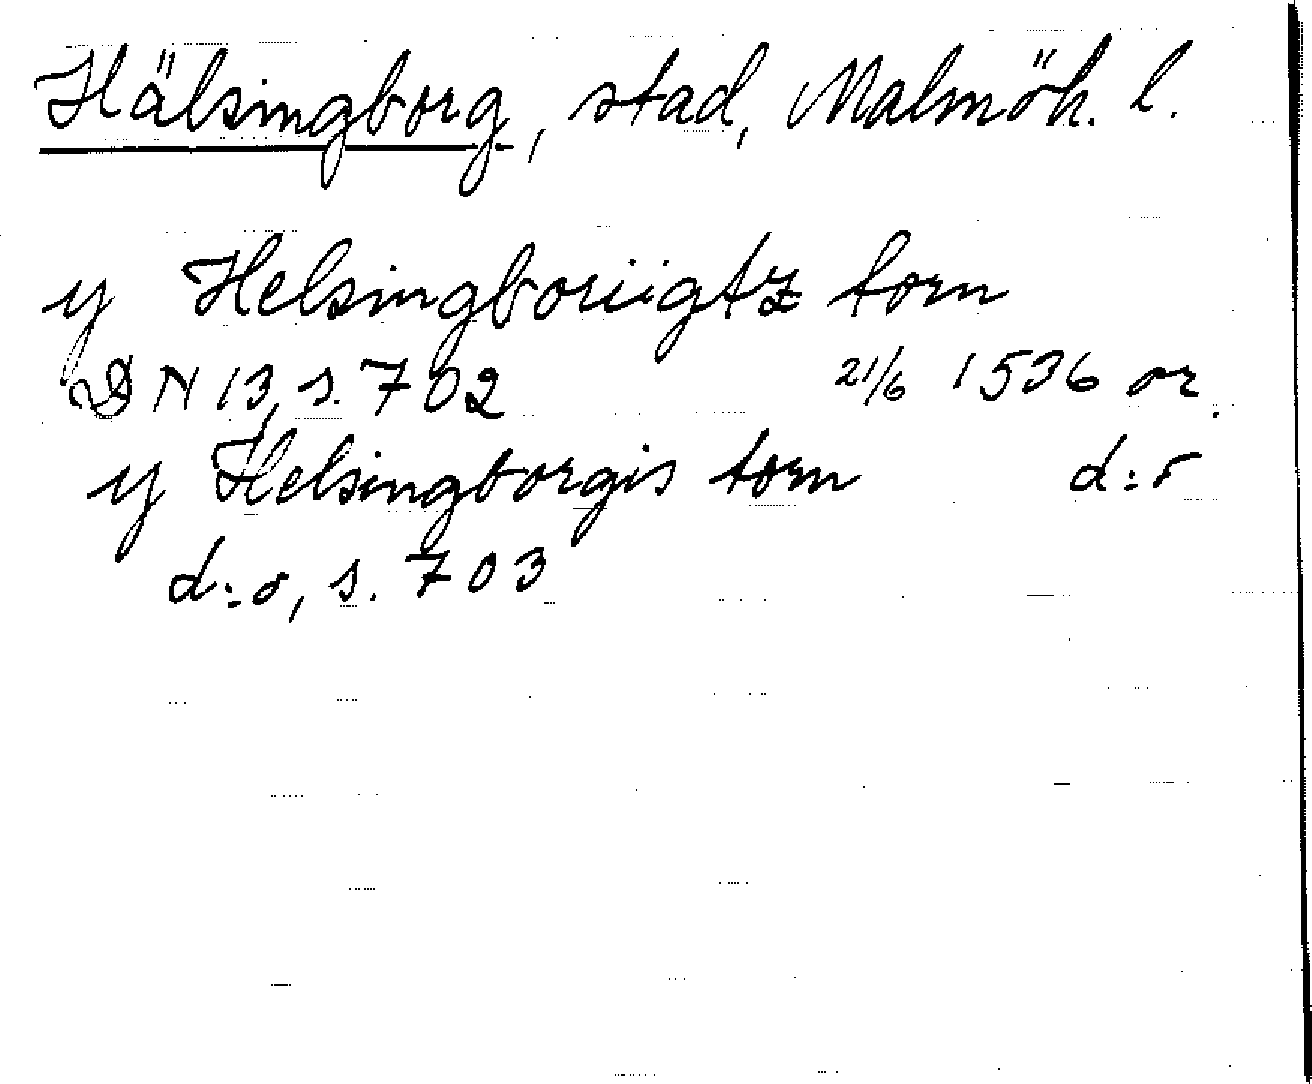 Hälsingborg, stad, Malmöh. l.
y Helsingboriigtz torn
DN 13, s. 702 21/6 1536 or.
y Helsingborgis torn d:o
d:o, s. 703